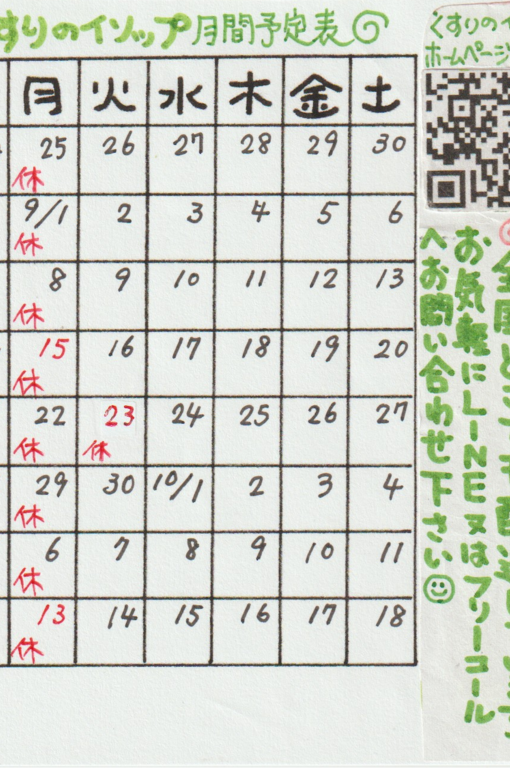 すりのイソップ 月間予定表
月 火 水 木 金 土
25 26 27 28 29 30
休
9/1 2 3 4 5 6
休
8 9 10 11 12 13
休
15 16 17 18 19 20
休
22 23 24 25 26 27
休 休
29 30 10/1 2 3 4
休
6 7 8 9 10 11
休
13 14 15 16 17 18
休
くすりのイ
ホームページ
お気軽にLINE又はフリーコール
へお問い合わせ下さい